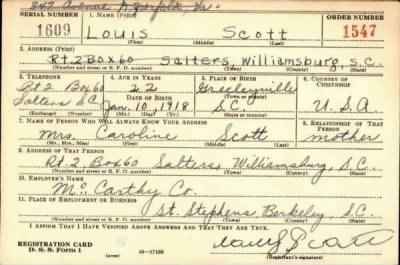 847 Avenue A Norfolk, Va.
SERIAL NUMBER 1. NAME (Print) ORDER NUMBER
1609 Louis Scott 1547
(First) (Middle) (Last)
2. ADDRESS (Print)
Rt. 2 Box 60 Salters, Williamsburg, S.C.
(Number and street or R. F. D. number) (Town) (County) (State)
3. TELEPHONE 4. AGE IN YEARS 5. PLACE OF BIRTH 6. COUNTRY OF CITIZENSHIP
Rt 2 Box 60 22 Greeleyville
DATE OF BIRTH (Town or county)
Salters S.C. Jan. 10, 1918 S.C. U.S.A
(Exchange) (Number) (Mo.) (Day) (Yr.) (State or country)
7. NAME OF PERSON WHO WILL ALWAYS KNOW YOUR ADDRESS 8. RELATIONSHIP OF THAT PERSON
Mrs. Caroline Scott mother
(Mr., Mrs., Miss) (First) (Middle) (Last)
9. ADDRESS OF THAT PERSON
Rt. 2. Box 60 Salters, Williamsburg, S.C.
(Number and street or R. F. D. number) (Town) (County) (State)
10. EMPLOYER'S NAME
Mc Carthy Co.
11. PLACE OF EMPLOYMENT OR BUSINESS
St. Stephens Berkeley, S.C.
(Number and street or R. F. D. number) (Town) (County) (State)
I AFFIRM THAT I HAVE VERIFIED ABOVE ANSWERS AND THAT THEY ARE TRUE.
REGISTRATION CARD
D. S. S. Form 1 16—17105 (Registrant's signature)